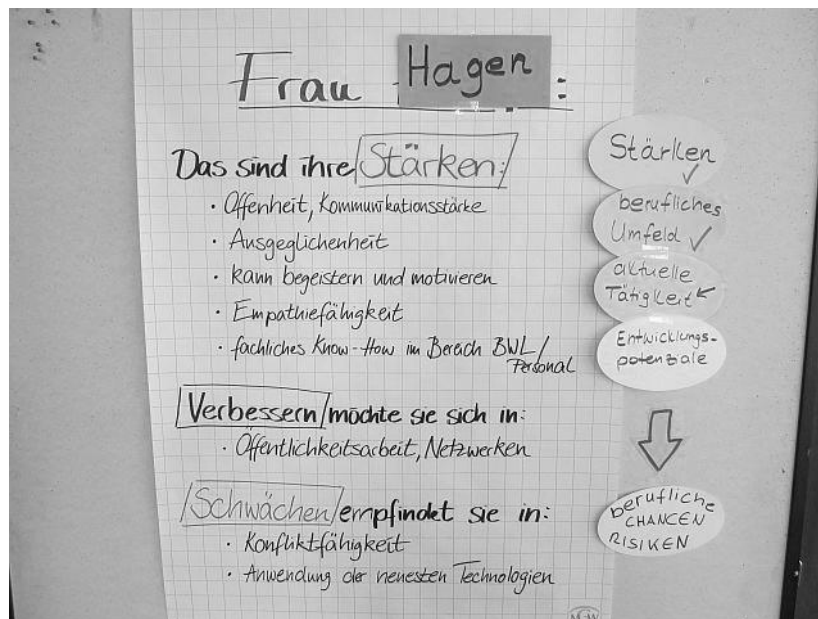 Frau Hagen :
Das sind ihre Stärken:
· Offenheit, Kommunikationsstärke
· Ausgeglichenheit
· kann begeistern und motivieren
· Empathiefähigkeit
· fachliches Know-How im Bereich BWL/
Personal
Verbessern möchte sie sich in:
· Öffentlichkeitsarbeit, Netzwerken
Schwächen empfindet sie in:
· Konfliktfähigkeit
· Anwendung der neuesten Technologien
Stärken ✓
berufliches
Umfeld ✓
aktuelle
Tätigkeit
Entwicklungs-
potenziale
berufliche
CHANCEN
RISIKEN